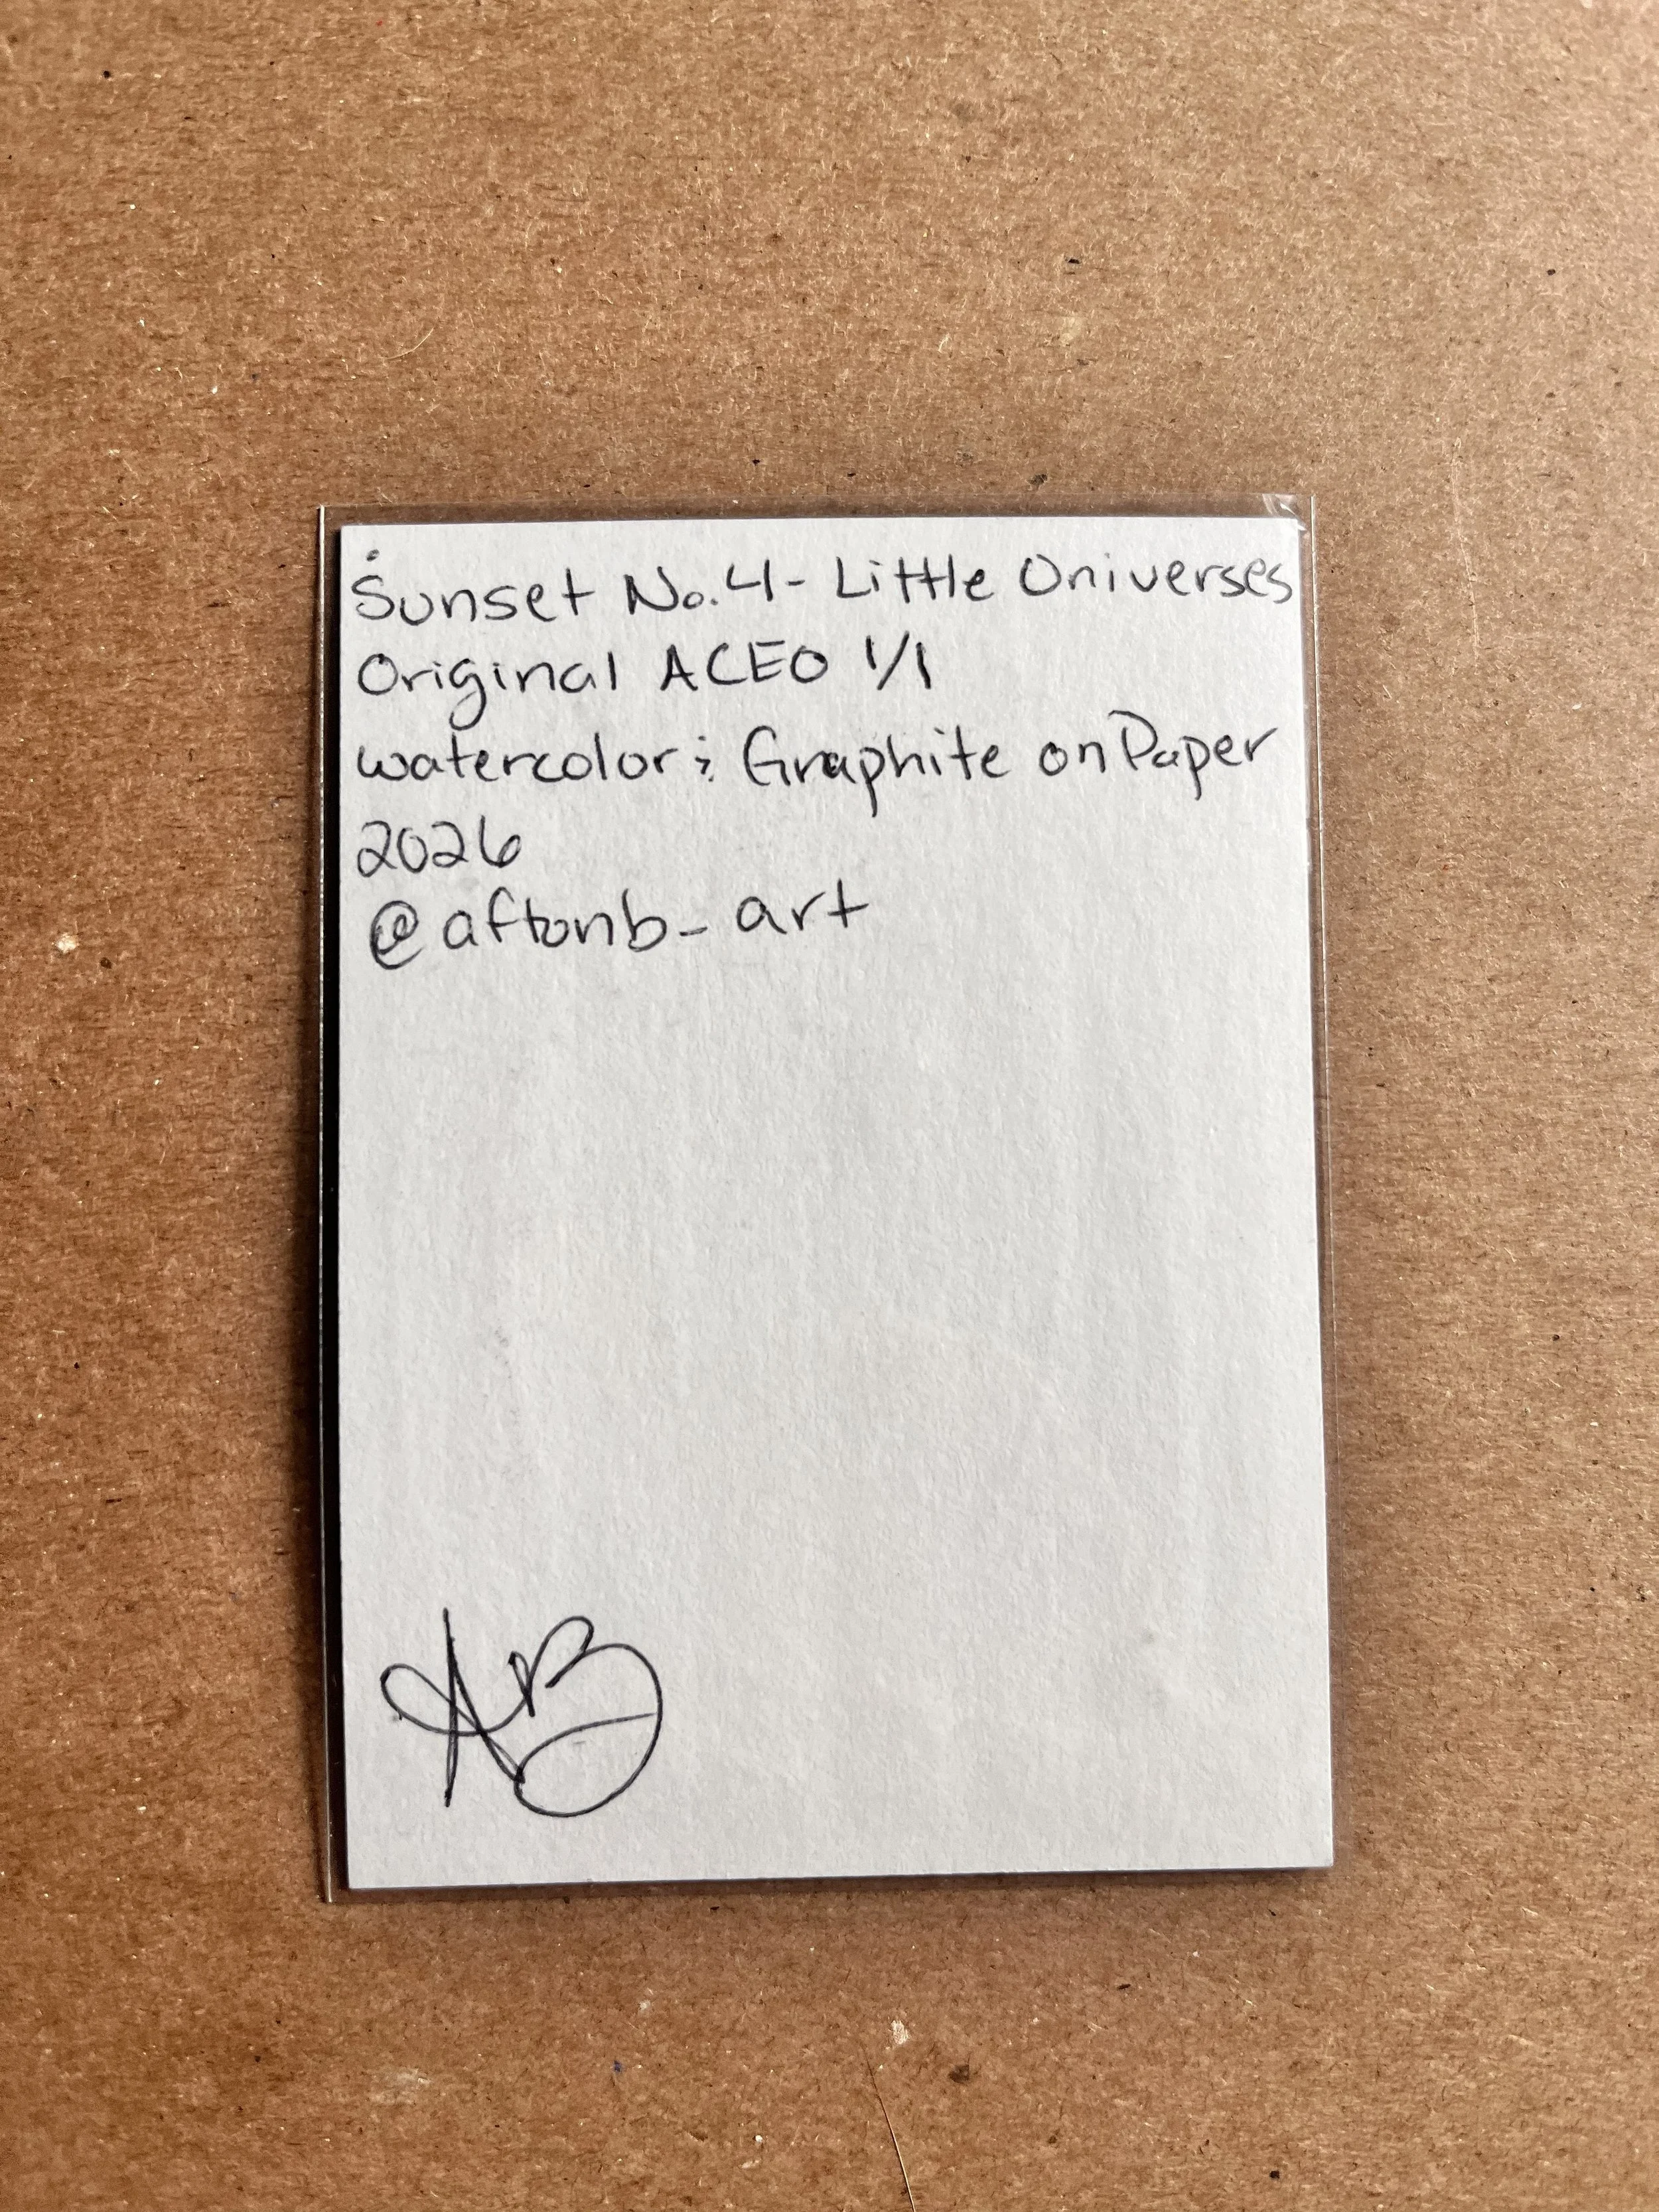 Sunset No.4- Little Universes
Original ACEO 1/1
watercolor & Graphite on Paper
2026
@aftonb_art
AB